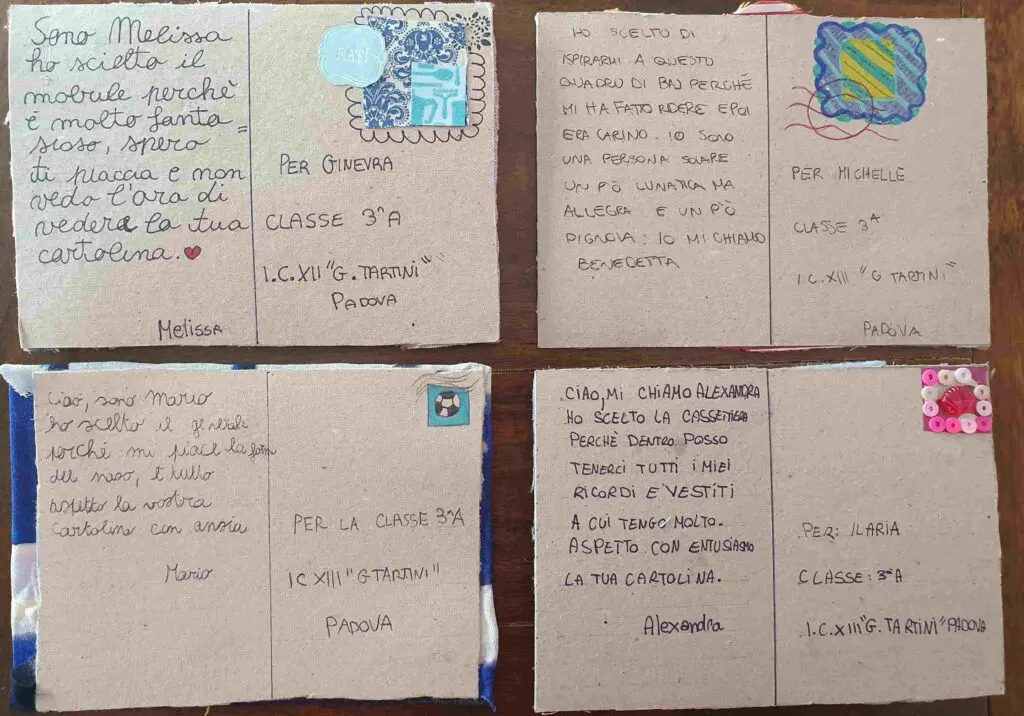 Sono Melissa
ho scielto il
mobrule perchè
è molto fanta=
sioso, spero
ti piaccia e non
vedo l'ora di
vedere la tua
cartolina.
Melissa
PER GINEVRA
CLASSE 3^A
I.C. XII "G. TARTINI"
PADOVA
HO SCELTO DI
ISPIRARMI A QUESTO
QUADRO DI BAJ PERCHÉ
MI HA FATTO RIDERE E POI
ERA CARINO. IO SONO
UNA PERSONA SOLARE
UN PÒ LUNATICA MA
ALLEGRA E UN PÒ
PIGNOLA: IO MI CHIAMO
BENEDETTA
PER MICHELLE
CLASSE 3^A
I.C. XIII "G TARTINI"
PADOVA
Ciao, sono Mario
ho scelto il
perché mi piace la form
del naso, è tutto
aspetto la vostra
cartolina con ansia
Mario
PER LA CLASSE 3^A
IC XIII "G TARTINI"
PADOVA
CIAO, MI CHIAMO ALEXANDRA
HO SCELTO LA CASSETTIERA
PERCHÈ DENTRO POSSO
TENERCI TUTTI I MIEI
RICORDI E VESTITI
A CUI TENGO MOLTO.
ASPETTO CON ENTUSIASMO
LA TUA CARTOLINA.
Alexandra
PER: ILARIA
CLASSE: 3^A
I.C. XIII "G. TARTINI" PADOVA